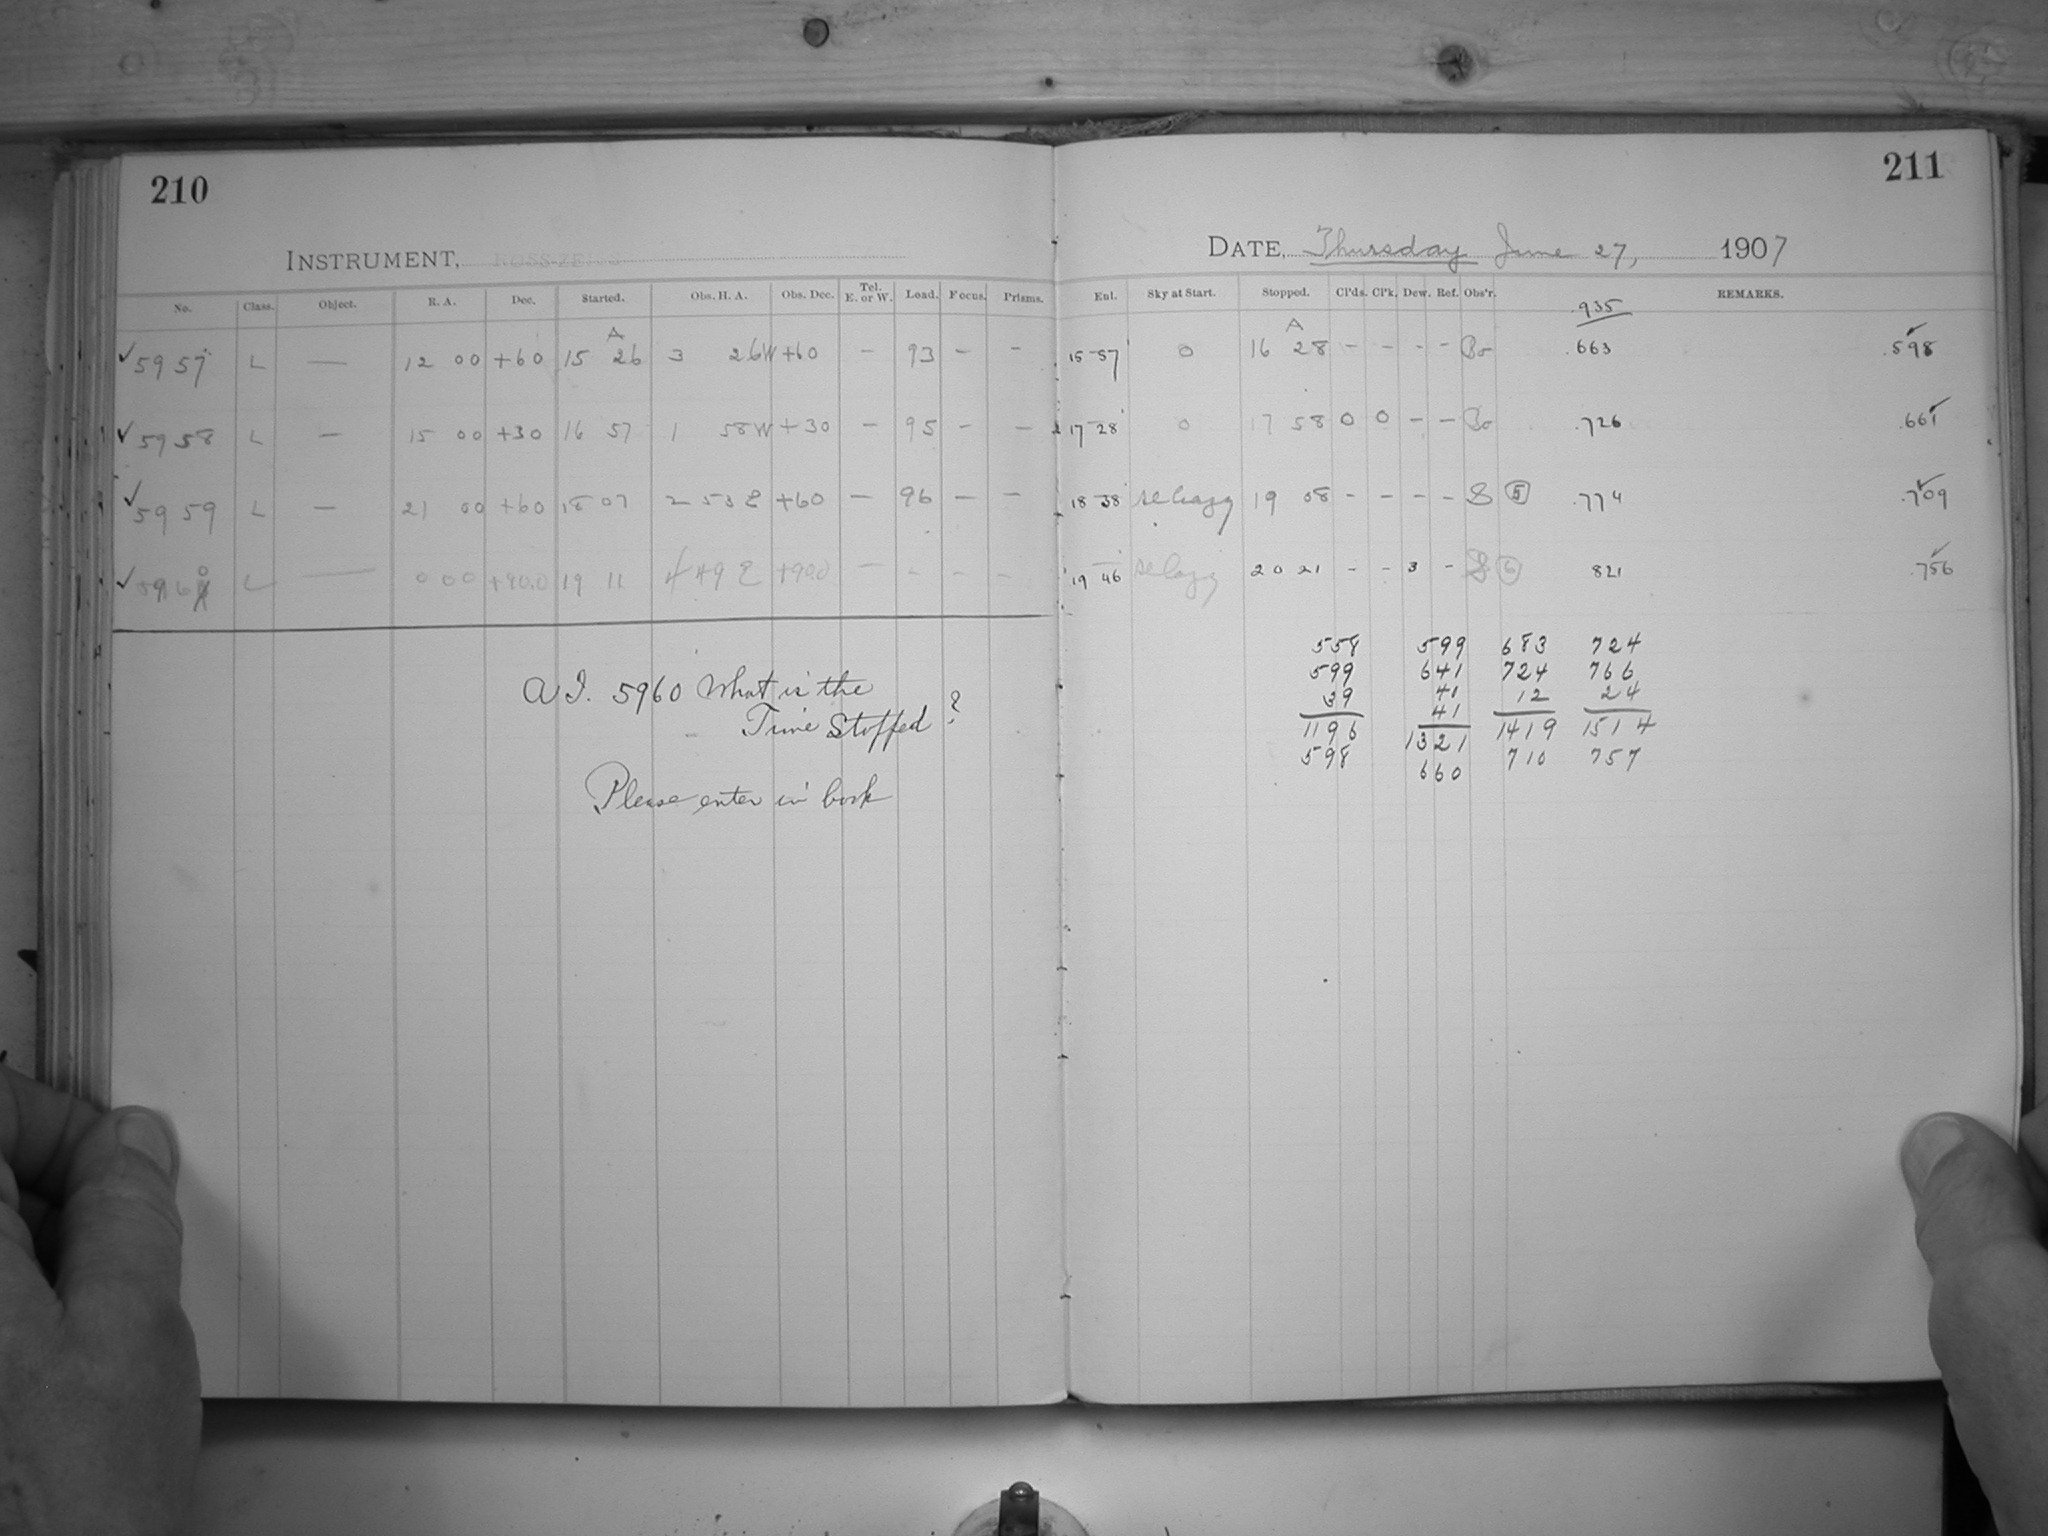 210
211
INSTRUMENT, ROSS-ZEISS
DATE, Thursday June 27, 1907
No. Class. Object. R. A. Dec. Started. Obs. H. A. Obs. Dec. Tel. E. or W. Load. Focus. Prisms. Enl. Sky at Start. Stopped. Cl'ds. Cl'k. Dew. Ref. Obs'r. REMARKS.
.935
✓ 5957 L — 12 00 +60 A 15 26 3 26W +60 — 93 — — 15 57 0 A 16 28 - - - - Bo .663 .598 ✓
✓ 5958 L — 15 00 +30 16 57 1 58W +30 — 95 — — 17 28 0 17 58 0 0 — — Bo .726 .661 ✓
✓ 5959 L — 21 00 +60 18 07 2 53 E +60 — 96 — — 18 38 se hazy 19 08 - - - - S 5 .774 .709 ✓
✓ 5960 L — 0 00 +90.0 19 11 4 49 E +90.0 — - - - 19 46 20 21 - - 3 - S 6 821 .756 ✓
A I. 5960 What is the
Time Stopped ?
Please enter in book
558 599 683 724
599 641 724 766
39 41 12 24
41
1196 1321 1419 1514
598 660 710 757